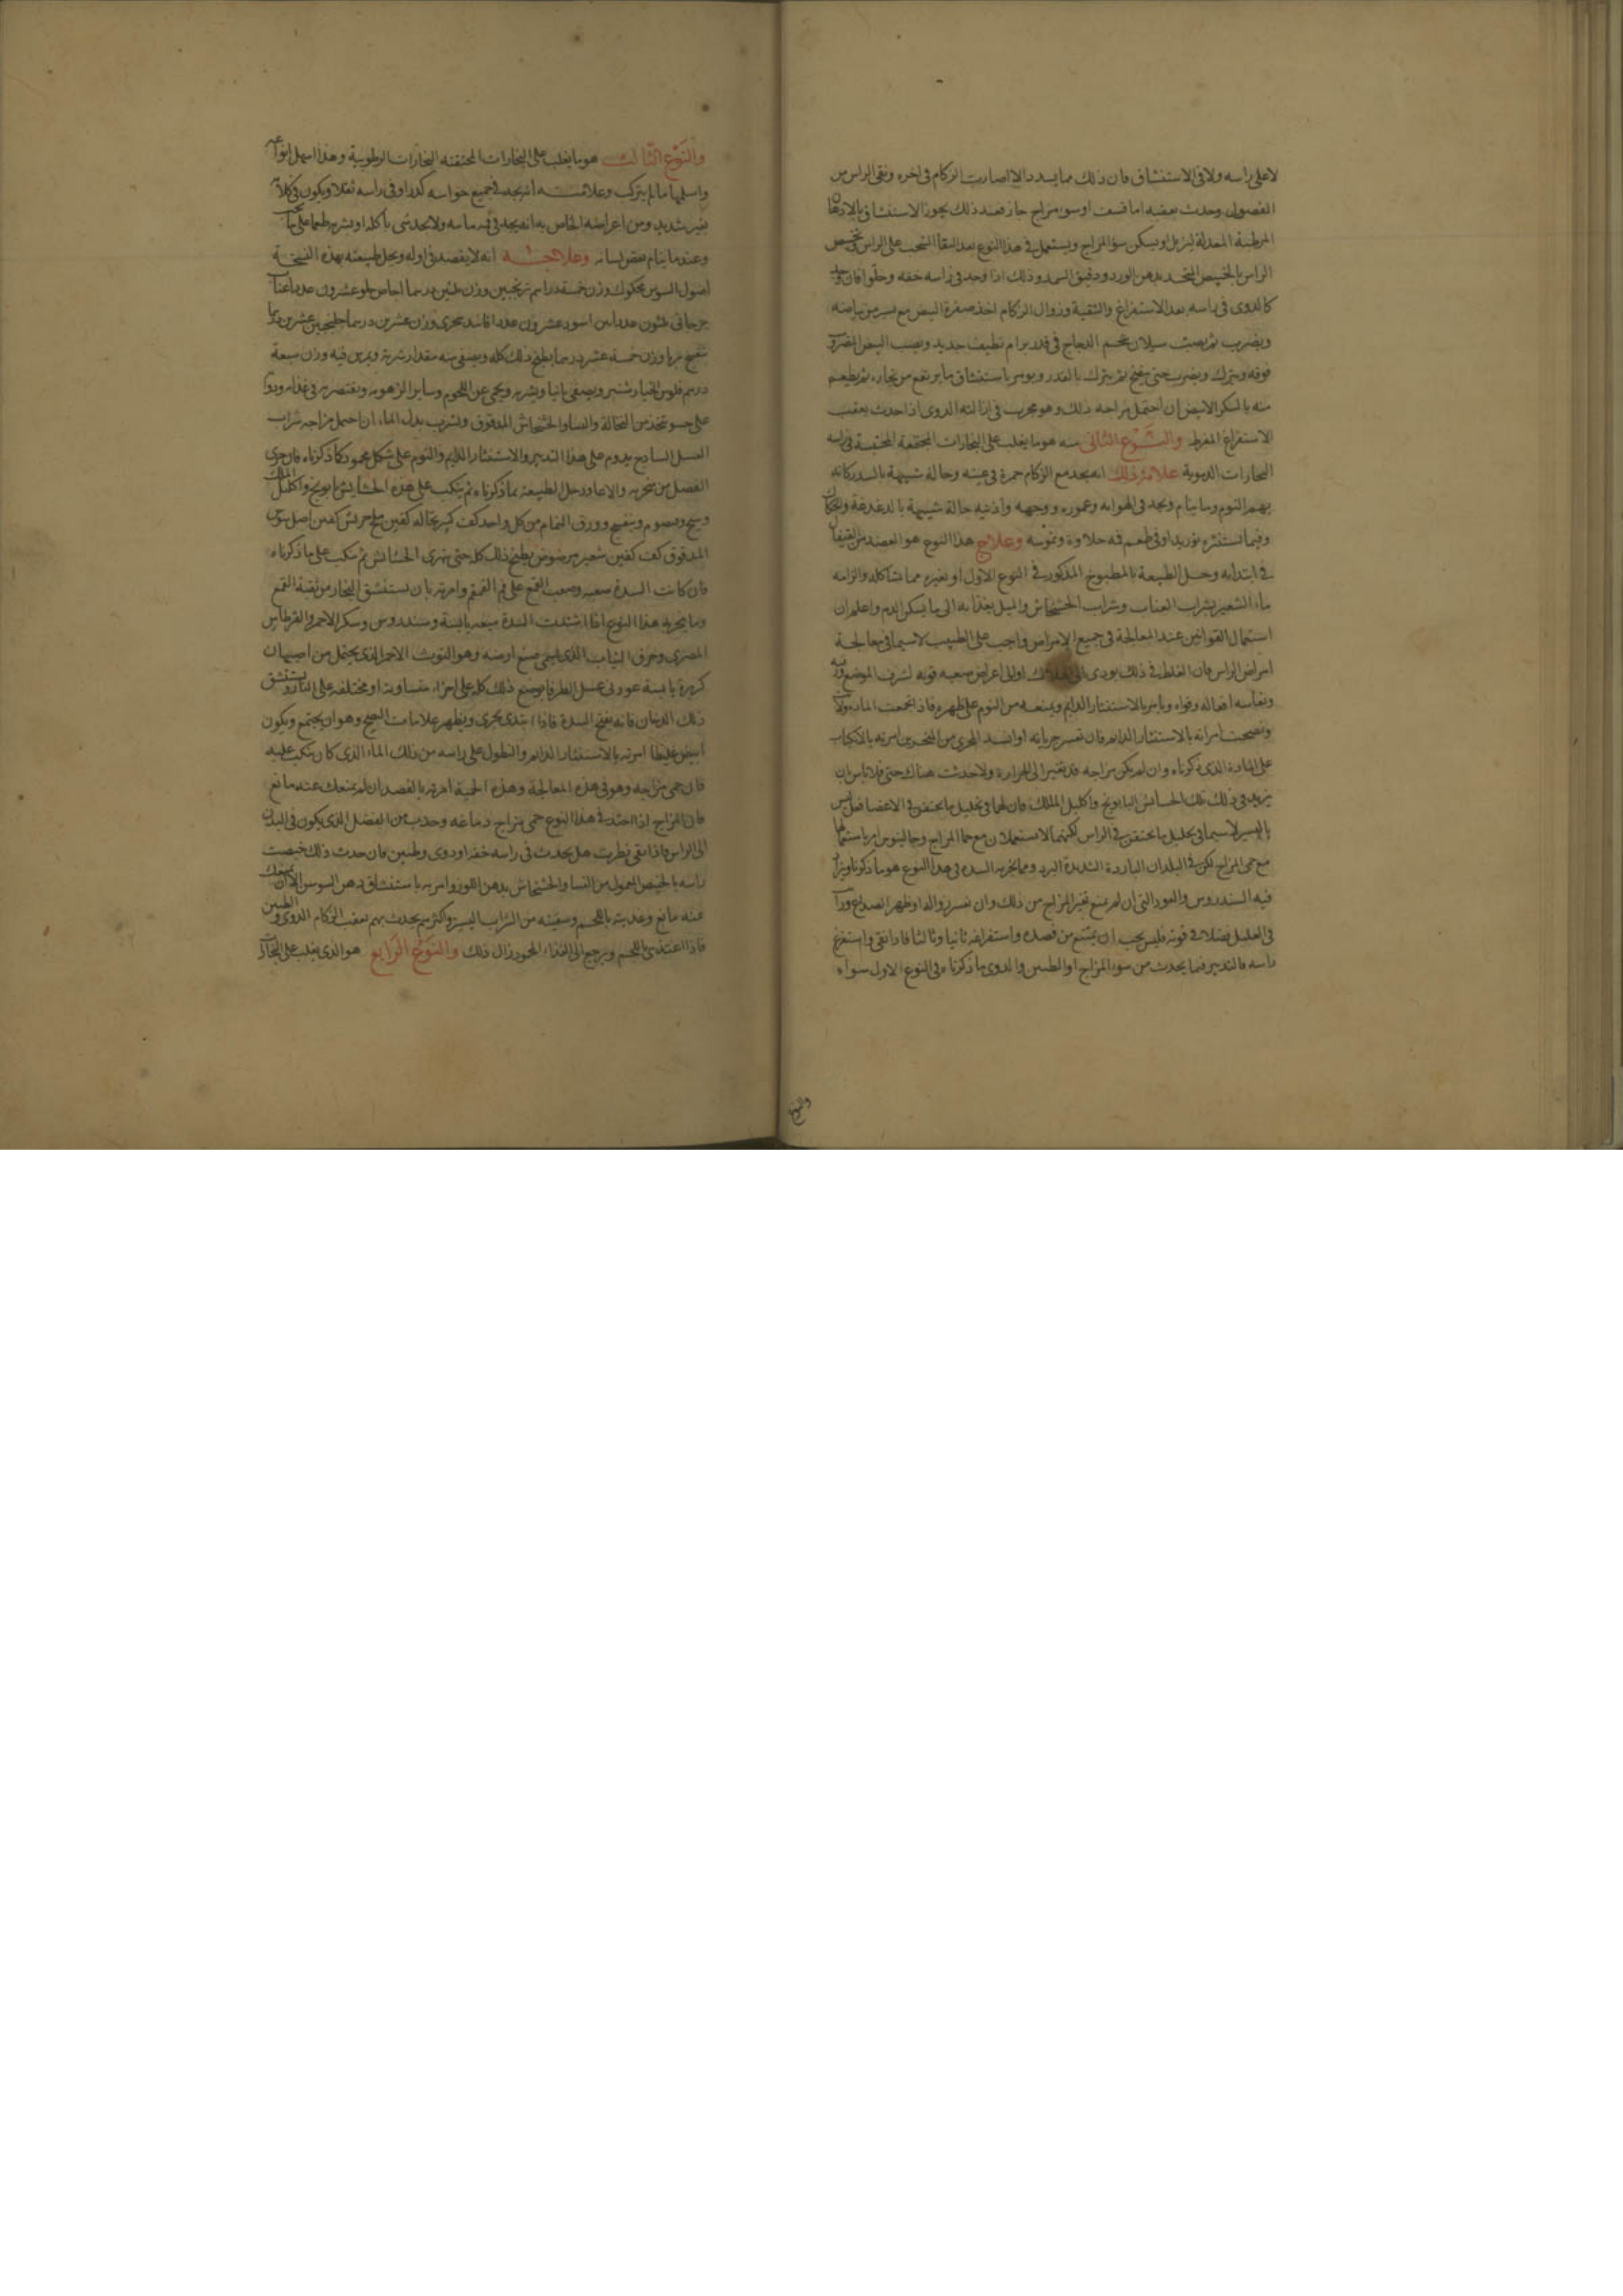 لاعلى راسه ولا فى الاستنشاق فان ذلك مما يسدد الا اصارت الزكام فى اخره ونقى الراس من
الفضول وحدث بعضه اما قسف او سو مزاج حار فعند ذلك يجوز الاستنشاق بالادهان
المرطبة المعدلة ليزيل او يسكن سؤ المزاج ويستعمل فى هذا النوع بعد النقا التحب على الراس
الراس بالخبيص المتخذ بدهن الورد ودقيق السمد وذلك اذا وجد فى راسه خفه وخلوا فان وجد
كالدوى فى راسه بعد الاستفراغ والتنقية وزوال الزكام اخذ صفرة البيض مع يسير من بياضه
ويضرب ثم يصب سيلان شحم الدجاج فى قدر برام نظيف جديد ويصب البيض المضروب
فوقه ويترك ويضرب حتى ينفتح ثم يترك بالقدر ويومر باستنشاق ما يرتفع من بخاره ثم يطعم
منه بالسكر الابيض ان احتمل مزاجه ذلك وهو مجرب فى ازالته الدوى اذا حدث بعقب
الاستفراغ المفرط والنوع الثانى منه هو ما يغلب على البخارات المجتمعة المحتبسة فى راسه
البخارات الدموية علامة ذلك انه يجد مع الزكام حمرة فى عينه وحالة شبيهة بالسدر كانه
يهم النوم وما ينام ويجد فى لهواته وعموره ووجهه واذنيه حالة شبيهة بالدغدغة والحكاك
وفيما يستنثره توريدا وفى طعم فمه حلاوة وعلاج هذا النوع هو الفصد من القيفال
فى ابتدايه وحل الطبيعة بالمطبوخ المذكور فى النوع الاول او بغيره مما شاكله والزامه
ماء الشعير بشراب العناب وشراب الخشخاش والميل بغذائه الى ما يسكن الدم واعلم ان
استعمال القوانين عند المعالجة فى جميع الامراض واجب على الطبيب لاسيما فى معالجة
امراض الراس فان الغلط فى ذلك يودى الى الهلاك او الى اعراض صعبه قويه لشرف الموضع
ونفاسه افعاله وقواه ويامر بالاستنثار الدايم ويمنعه من النوم على ظهره فاذا تجمعت الماده
ونضجت امرته بالاستنثار الدايم فان تعسر جريانه او انسد المجرى من المنخرين امرته بالانكباب
على المادة الذى ذكرناه وان لم يكن مزاجه قد تغير الى الحرارة ولا حدثت هناك حمى فلا باس ان
يزيد فى ذلك تلك الحشائش البابونج واكليل الملك فان لهما فى تحليل ما يحتقن فى الاعضا فعل ليس
باليسير لاسيما فى تحليل ما يحتقن فى الراس لكنهما لا يستعملان مع حما المزاج وجالينوس امر باستعمالها
مع حمى المزاج لكن فى البلدان الباردة الشديدة البرد ومما يحرمه السده فى هذا النوع هو ما ذكرنا ويزاد
فيه السندروس والعود التى ان لم يمنع تغير المزاج من ذلك وان تعسر زواله او ظهر الصداع
فى العليل فضلا فى قوته فليس يجب ان يمتنع من فصده واستفراغه ثانيا وثالثا فاذا نقى واستفرغ
راسه فالتدبير فيما يحدث من سوء المزاج او الطنين والدوى ما ذكرناه فى النوع الاول سواء
والنوع
والنوع الثالث هو ما يغلب على البخارات المحتقنه البخارات الرطوبية وهذا اسهل انواعه
واسلمها ما لم يترك وعلامته انه يجد فى جميع حواسه كدرا وفى راسه ثقلا ويكون فى كلامه
تغير شديد ومن اعراضه الخاص به انه يجد فى فمه ماسه ولا يجد شى ياكله او يشربه طعما على
وعندما ينام يعض لسانه وعلاجه انه لا يفصد فى اوله ويحل طبيعته بهذه النسخة
اصول السوس محكوك وزن خمسة دراهم ترنجبين وزن ثلثين درهما اجاص حلو عشرون عددا عناب
جرجانى ثلثون عددا تين اسود عشرون عددا فانيد سجزى وزن عشرين درهما جلنجبين عشرين درهما
بنفسج مربا وزن خمسة عشر درهما يطبخ ذلك كله ويصفى منه مقدار شربة ويمرس فيه وزن سبعة
درهم فلوس الخيار شنبر ويصفى ثانيا ويشربه ويحمى عن اللحوم وساير الزهومه ويقتصر به فى غذايه
على حسو متخذ من النخالة والنشا والخشخاش المدقوق ويشرب بدل الماء ان احتمل مزاجه شراب
العسل الساذج يدوم على هذا التدبير والاستنثار الدايم والنوم على شكل محمود كما ذكرناه فان جرى
الفضل من منخريه والا عاود حل الطبيعة بما ذكرناه ثم ينكب على هذه الحشايش بابونج واكليل الملك
وشيح وقيصوم وبنفسج وورق النمام من كل واحد كف كبير نخاله كفين ملح جريش كفين اصل سوس
المدقوق كف كفين شعير مرضوض يطبخ ذلك كله حتى يتهرى الحشائش ثم ينكب على ما ذكرناه
فان كانت السدة صعبه وضعت القمع على فم القمقم وامرته بان يستنشق البخار من ثقبة القمع
وما يحربه هذا النوع اذا اشتدت السدة ميعه يابسة وسندروس وسكر الاحمر والقرطاس
المصرى وخرق الثياب الذى يسمى صبغ ارضه وهو التوث الاحمر الذى يحتمل من اصبهان
كزبرة يابسة عود نى عسل الطرفا يوضع ذلك كله على اجزاء متساوية او مختلفه على النار ويستنشق
ذلك الدخان فانه يفتح السدة فاذا ابتدى يجرى ويظهر علامات النضج وهو ان يجتمع ويكون
ابيض غليظا امرته بالاستنثار الدايم والنطول على راسه من ذلك الماء الذى كان ينكب عليه
فان حمى مزاجه وهو فى هذه المعالجة وهذه الحمية امرته بالفصد ان لم يمنعك عنه مانع
فان المزاج اذا احتد فى هذا النوع حمى بمزاج دماغه وحدب من الفضل الذى يكون فى البدن
الى الراس فاذا نقى نظرت هل يحدث فى راسه خفر او دوى وطنين فان حدث ذلك خبصت
راسه بالخبيص المعمول من النشا والخشخاش بدهن اللوز وامرته باستنشاق دهن السوسن الا ان يمنعك
عنه مانع وغذيته باللحم وسقيته من الشراب اليسير واكثرهم يحدث بهم بعقب الزكام الدوى والطنين
فاذا اغتذى باللحم ويرجع الى الغذاء المحمود زال ذلك والنوع الرابع هو الذى يغلب على البخار